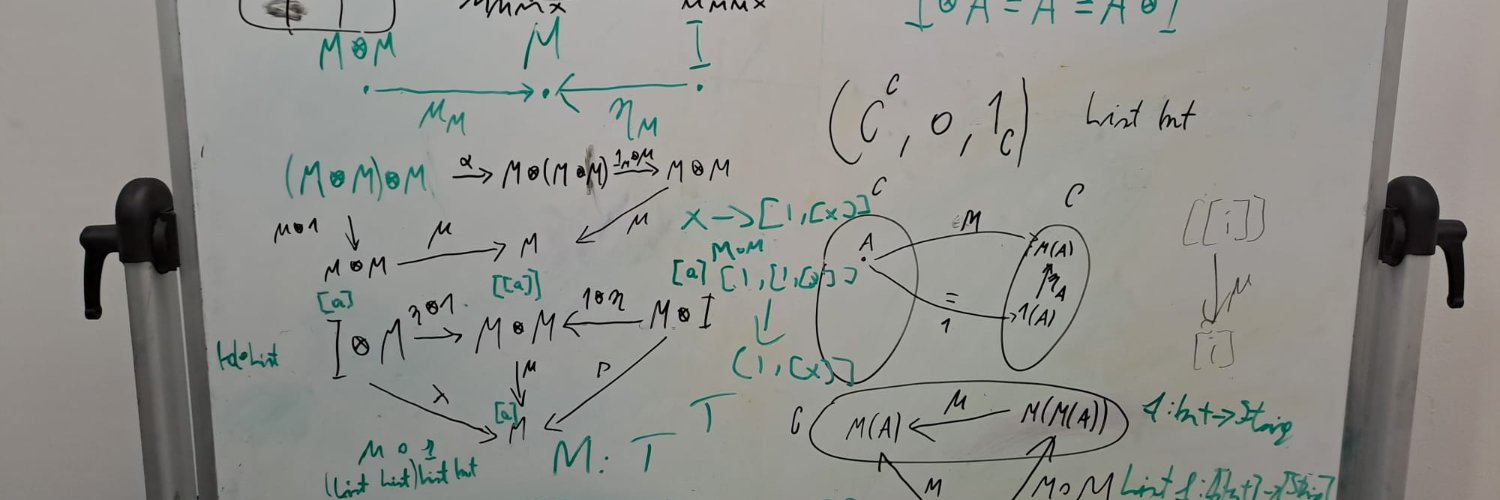 I ⊗ A = A = A ⊗ I
M ⊗ M M I
μ_M η_M
(C^C, ∘, 1_C) List Int
(M⊗M)⊗M α M⊗(M⊗M) 1_M⊗μ M⊗M
μ⊗1 μ M μ
M⊗M
x → [1,[x]]
M∘M
[a] [[a]] [a] [1,[1,[x]]]
I ⊗ M η⊗1 M⊗M 1⊗η M⊗I
(1,[x)]
Id∘List
λ μ ρ
[a]
M
M: T T
(List List) List Int
C C
A M M(A)
= η_A
1 1(A)
[[i]]
μ
[i]
C M(A) μ M(M(A))
f: Int → String
M M∘M List f: [Int] → [String]